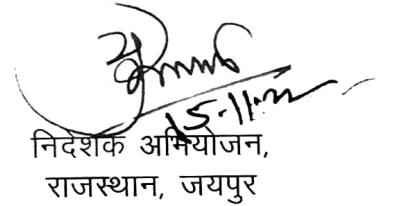 15-11-22
निदेशक अभियोजन,
राजस्थान, जयपुर